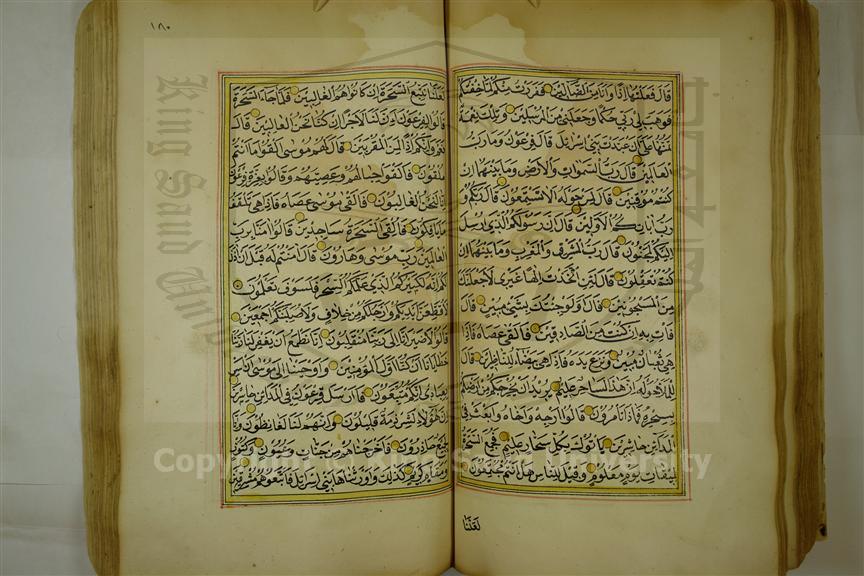 ١٨٠
قال فعلتها اذا وانا من الضالين ففررت منكم لما خفتكم
فوهب لي ربي حكما وجعلني من المرسلين وتلك نعمة
تمنها علي ان عبدت بني اسرائل قال فرعون وما رب
العالمين قال رب السموات والارض وما بينهما ان
كنتم موقنين قال لمن حوله الا تستمعون قال ربكم و
رب ابائكم الاولين قال ان رسولكم الذي ارسل
اليكم لمجنون قال رب المشرق والمغرب وما بينهما ان
كنتم تعقلون قال لئن اتخذت الها غيري لاجعلنك
من المسجونين قال اولو جئتك بشيء مبين قال
فات به ان كنت من الصادقين فالقى عصاه فاذا
هي ثعبان مبين ونزع يده فاذا هي بيضاء للناظرين قال
للملا حوله ان هذا لساحر عليم يريد ان يخرجكم من ارضكم
بسحره فماذا تامرون قالوا ارجه واخاه وابعث في
المداين حاشرين ياتوك بكل سحار عليم فجمع السحرة
لميقات يوم معلوم وقيل للناس هل انتم مجتمعون
لعلنا
لعلنا نتبع السحرة ان كانوا هم الغالبين فلما جاء السحرة
قالوا لفرعون ائن لنا لاجرا ان كنا نحن الغالبين قال
نعم وانكم اذا لمن المقربين قال لهم موسى القوا ما انتم
ملقون فالقوا حبالهم وعصيهم وقالوا بعزة فرعون
انا لنحن الغالبون فالقى موسى عصاه فاذا هي تلقف
ما يافكون فالقي السحرة ساجدين قالوا امنا برب
العالمين رب موسى وهارون قال امنتم له قبل ان اذن
لكم انه لكبيركم الذي علمكم السحر فلسوف تعلمون
لاقطعن ايديكم وارجلكم من خلاف ولاصلبنكم اجمعين
قالوا لا ضير انا الى ربنا منقلبون انا نطمع ان يغفر لنا ربنا
خطايانا ان كنا اول المؤمنين واوحينا الى موسى ان اسر
بعبادي انكم متبعون فارسل فرعون في المداين حاشرين
ان هؤلاء لشرذمة قليلون وانهم لنا لغائظون وانا
لجميع حاذرون فاخرجناهم من جنات وعيون وكنوز
ومقام كريم كذلك واورثناها بني اسرائل فاتبعوهم مشرقين
King Saud Univ
Copyright © King Saud University